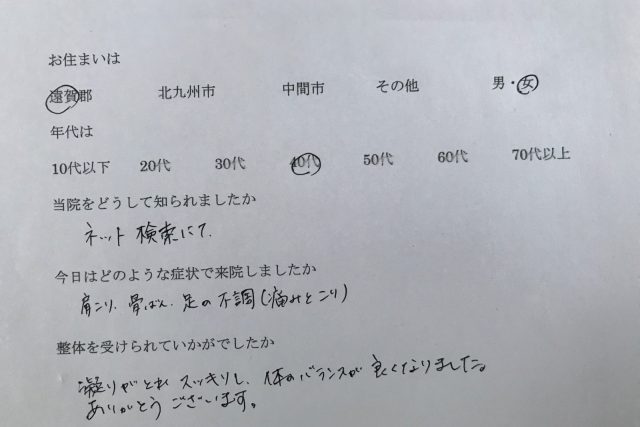 お住まいは
遠賀郡 北九州市 中間市 その他 男・女
年代は
10代以下 20代 30代 40代 50代 60代 70代以上
当院をどうして知られましたか
ネット検索にて.
今日はどのような症状で来院しましたか
肩こり、骨ばん、足の不調(痛みとこり)
整体を受けられていかがでしたか
凝りがとれスッキリし、体のバランスが良くなりました。
ありがとうございます。